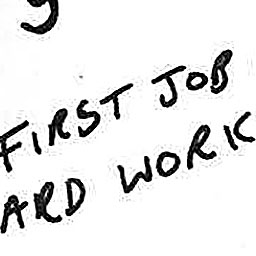 FIRST JOB
ARD WORK